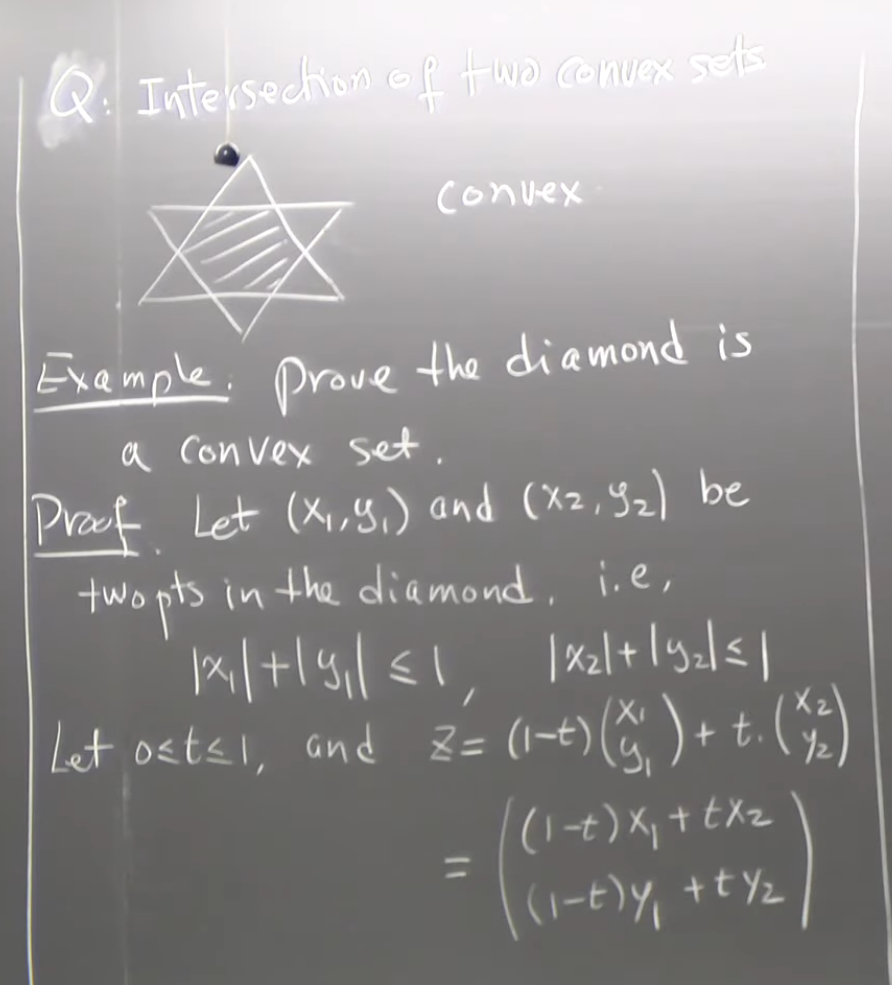 Q: Intersection of two convex sets
convex
Example: Prove the diamond is
a convex set.
Proof. Let (x₁, y₁) and (x₂, y₂) be
two pts in the diamond, i.e,
|x₁|+|y₁| ≤ 1, |x₂|+|y₂| ≤ 1
Let 0≤t≤1, and z = (1-t)(x₁ y₁) + t.(x₂ y₂)
= ((1-t)x₁ + tx₂
(1-t)y₁ + ty₂)